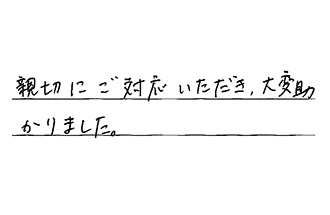 親切にご対応いただき,大変助
かりました。